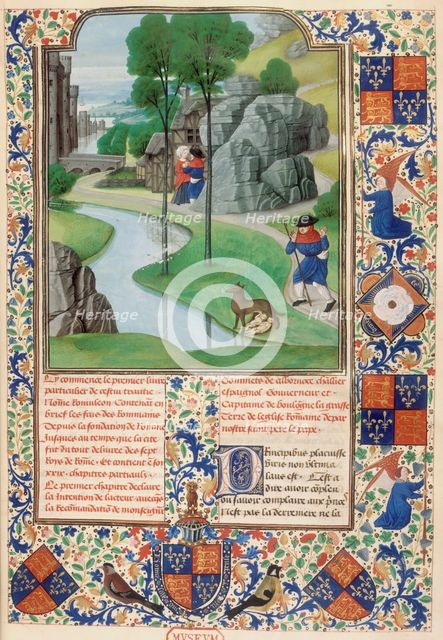 Heritage
Heritage
Heritage
Heritage
Cy commence le premier livre
particulier de cestui traittie
Nomme Romuleon Contenant en
brief les fais des Rommains
Depuis la fondation de Romme
Jusques au temps que la cite
fut du tout delivree des sept
Roys de Rome. Et contient
chapitres
Le premier chapitre declaire
la Intention de lacteur avecqs
la Recomandation de monseignr
Gomnets de albornez chllier
espaignol Gouverneur et
Capitaine de Boulongne la grasse
Terre de leglise Romaine de par
nostre saint pere le pape.
Principibus placuisse
viris non ultima
laus est. Cest a
dire avoir compleu
ou savoir complaire aux princes
nest pas la derreniere ne la
MVSEVM